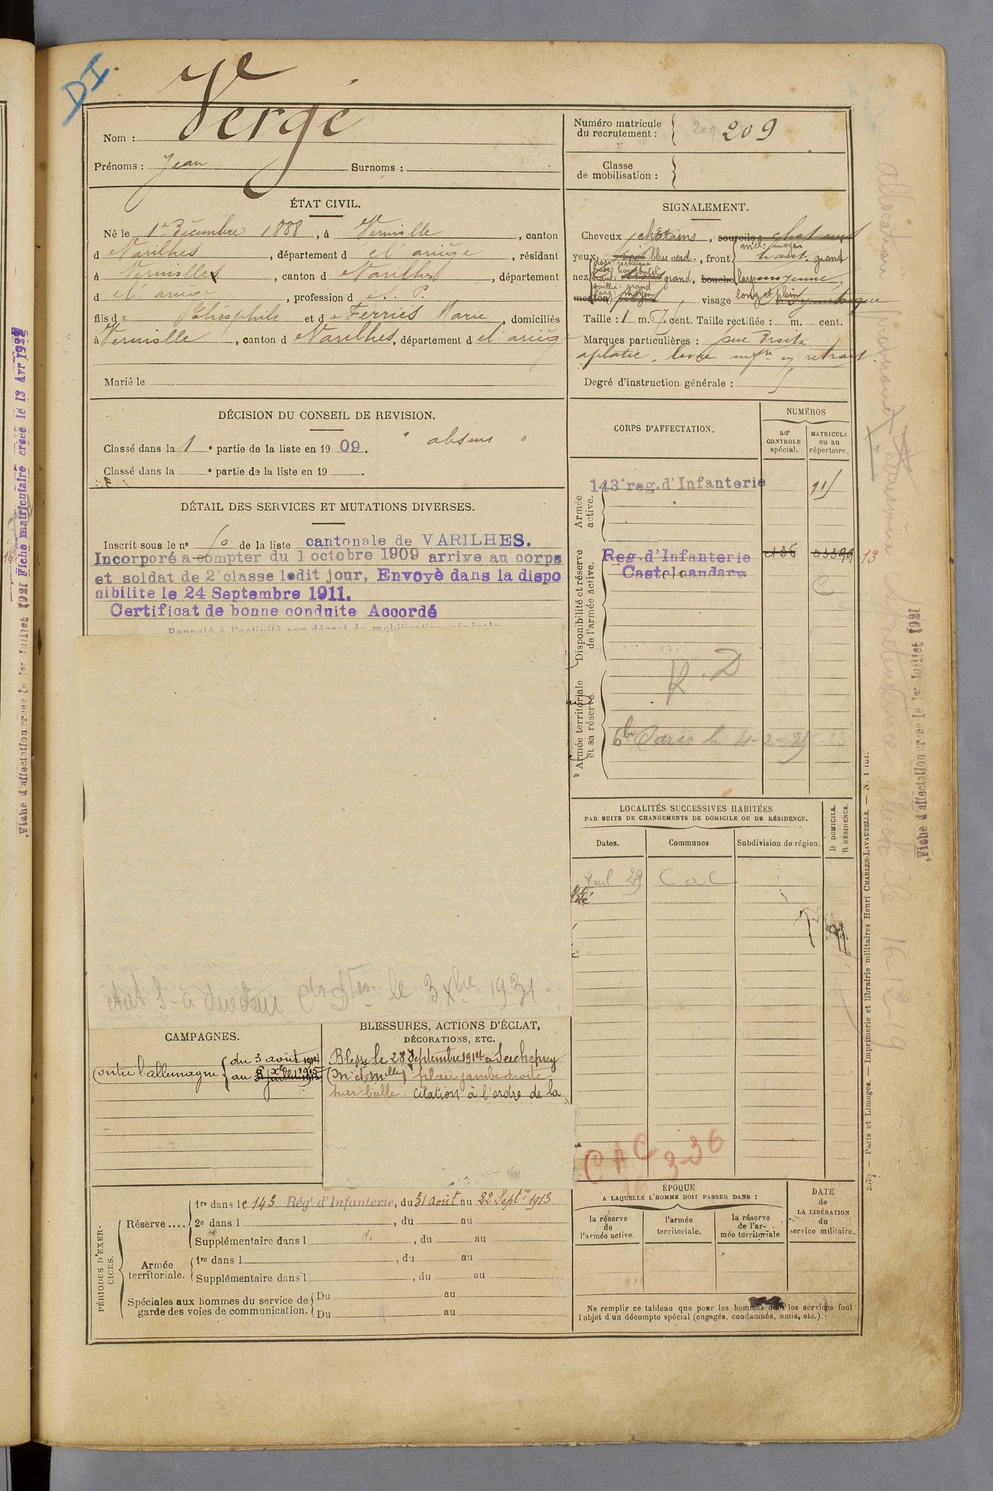 DI
Vergé
Nom :
Prénoms : Jean Surnoms :
Numéro matricule du recrutement : 209 209
Classe de mobilisation :
ÉTAT CIVIL.
Né le 1er Décembre 1888, à Verniolle, canton
d e Varilhes, département d e l'ariège, résidant
à Verniolle, canton d e Varilhes, département
d e l'ariège, profession d e
fils d e Théophile et d e Ferriès Marie, domiciliés
à Verniolle, canton d e Varilhes, département d e l'ariège
Marié le
SIGNALEMENT.
Cheveux chatains, sourcils : chatains
yeux bleu verd., front haut. grand
nez grand, bouche
menton, visage long et plein
Taille : 1 m. 67 cent. Taille rectifiée : m. cent.
Marques particulières :
Degré d'instruction générale :
DÉCISION DU CONSEIL DE REVISION.
Classé dans la 1 e partie de la liste en 1909. " absent "
Classé dans la e partie de la liste en 19 .
DÉTAIL DES SERVICES ET MUTATIONS DIVERSES.
Inscrit sous le n° de la liste cantonale de VARILHES.
Incorporé a compter du 1 octobre 1909 arrive au corps
et soldat de 2e classe ledit jour, Envoyé dans la dispo
nibilite le 24 Septembre 1911.
Certificat de bonne conduite Accordé
Rappelé à l'activité par décret de mobilisation générale
le 3 Xbre 1931.
CORPS D'AFFECTATION.
NUMÉROS
au CONTROLE spécial.
MATRICULE ou au répertoire.
Armée active.
143e reg. d'Infanterie
Disponibilité et réserve de l'armée active.
Reg. d'Infanterie
Castelnaudary
13
Armée territoriale et sa réserve.
R. D
LOCALITÉS SUCCESSIVES HABITÉES
PAR SUITE DE CHANGEMENTS DE DOMICILE OU DE RÉSIDENCE.
Dates. Communes Subdivision de région. D DOMICILE. R RÉSIDENCE.
29 CaC
CAC 3-36
CAMPAGNES.
Contre l'allemagne du 3 août 1914
au
BLESSURES, ACTIONS D'ÉCLAT,
DÉCORATIONS, ETC.
Blessé le 28 Septembre 1914 à Seicheprey
(Mthe et Mselle) plaie jambe droite
par balle. citation à l'ordre de la
PÉRIODES D'EXERCICES.
Réserve .... 1re dans le 143 Régt d'Infanterie, du 31 août au 22 Septre 1913
2e dans l , du au
Supplémentaire dans l , du au
Armée territoriale. 1re dans l , du au
Supplémentaire dans l , du au
Spéciales aux hommes du service de garde des voies de communication. Du au
Du au
ÉPOQUE
A LAQUELLE L'HOMME DOIT PASSER DANS :
la réserve de l'armée active.
l'armée territoriale.
la réserve de l'armée territoriale
DATE de LA LIBÉRATION du service militaire.
Ne remplir ce tableau que pour les hommes dont les services font
l'objet d'un décompte spécial (engagés, condamnés, omis, etc.).
Paris et Limoges. — Imprimerie et librairie militaires Henri CHARLES-LAVAUZELLE.
Fiche d'affectation créée le 1er Juillet 1921
Fiche d'affectation créée le 1er Juillet 1921
Fiche matriculaire créée le 13 Avr 1922